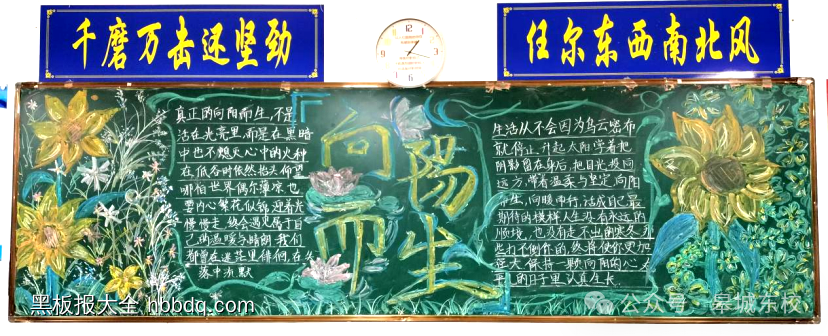 千磨万击还坚劲
任尔东西南北风
真正的向阳而生,不是
活在光亮里,而是在黑暗
中也不熄灭心中的火种
在低谷时依然抬头仰望
哪怕世界偶尔薄凉也
要内心繁花似锦,迎着光
慢慢走,终会遇见属于自
己的温暖与晴朗,我们
都曾在迷茫里徘徊,在
落中沉默
向阳
而生
生活从不会因为乌云密布
就停止升起太阳,学着把
阴影留在身后,把目光投向
远方,带着温柔与坚定,向阳
而生,向暖而行,活成自己最
期待的模样人生没有永远的
顺境,也没有走不出的寒冬那
些打不倒你的,终将使你更加
强大保持一颗向阳的心
的日子里认真生长
黑板报大全 hbbdq.com
公众号·皋城东校